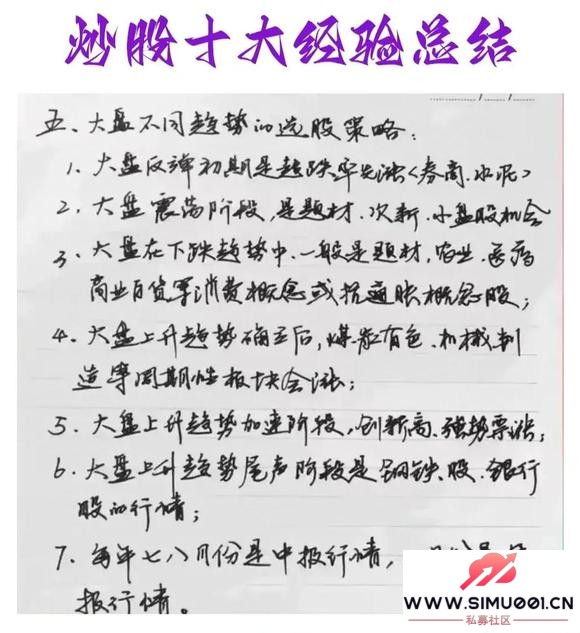 炒股十大经验总结
五、大盘不同趋势的选股策略:
1、大盘反弹初期是超跌率先涨<券商、水泥>
2、大盘震荡阶段,是题材、次新、小盘股机会
3、大盘在下跌趋势中、一般是题材,农业、医药
商业百货等消费概念或抗通胀概念股;
4、大盘上升趋势确立后,煤炭有色、机械制
造等周期性板块会涨;
5、大盘上升趋势加速阶段,创新高、强势票涨;
6、大盘上升趋势尾声阶段是钢铁股、银行
股的行情;
7、每年七八月份是中报行情,
报行情。
WWW.SIMU001.CN
私募社区